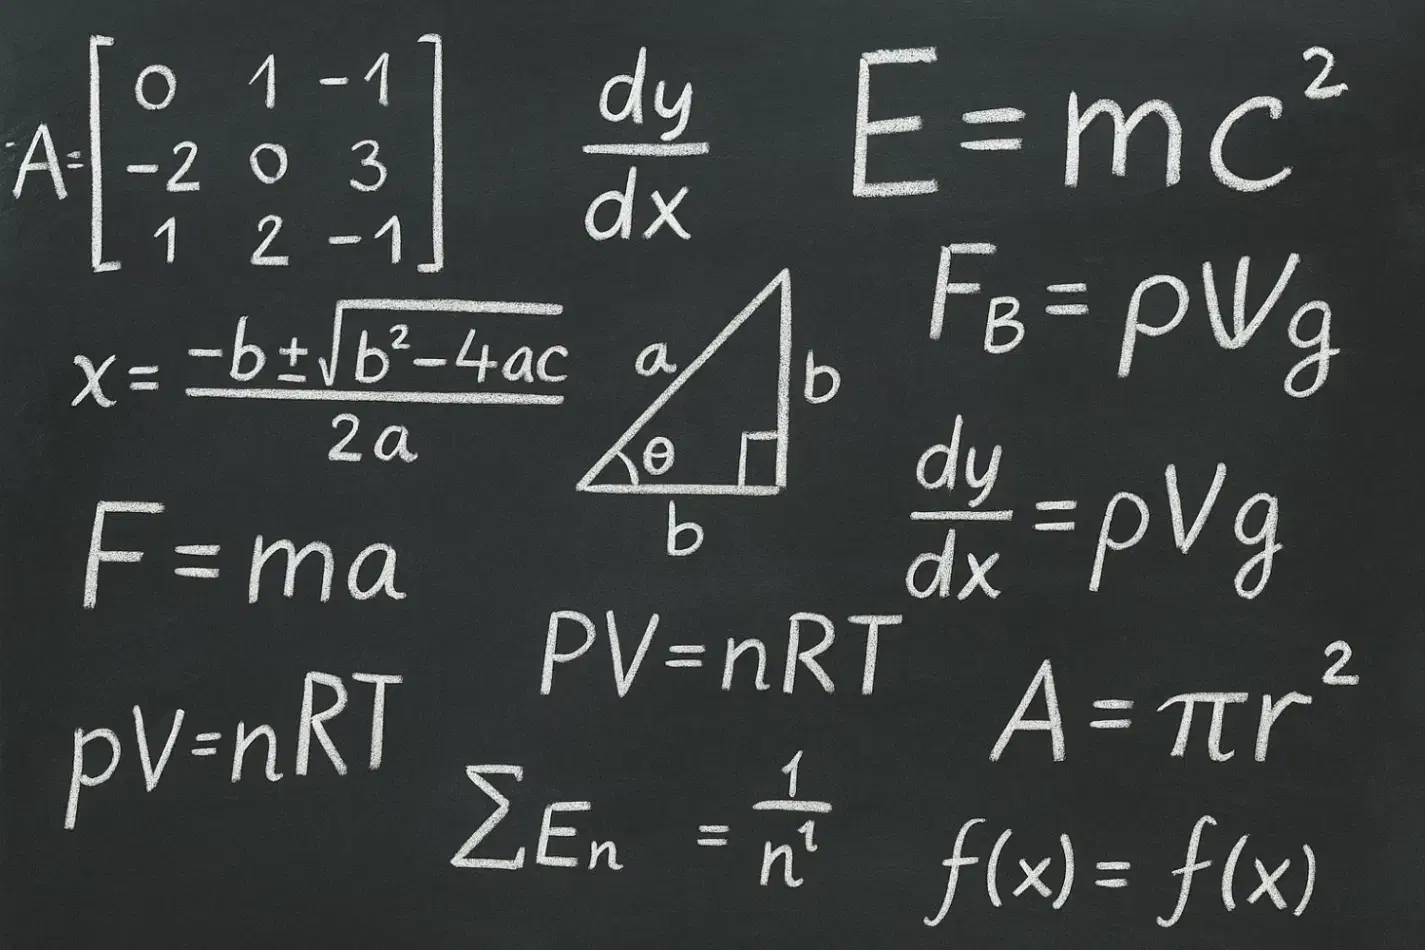 A = [ 0 1 -1
-2 0 3
1 2 -1 ]
dy
dx
E = mc²
F_B = ρVg
x = -b ± √b² - 4ac
2a
a
b
θ
b
dy
dx = ρVg
F = ma
PV = nRT
pV = nRT
A = πr²
ΣEn = 1
n¹
f(x) = f(x)